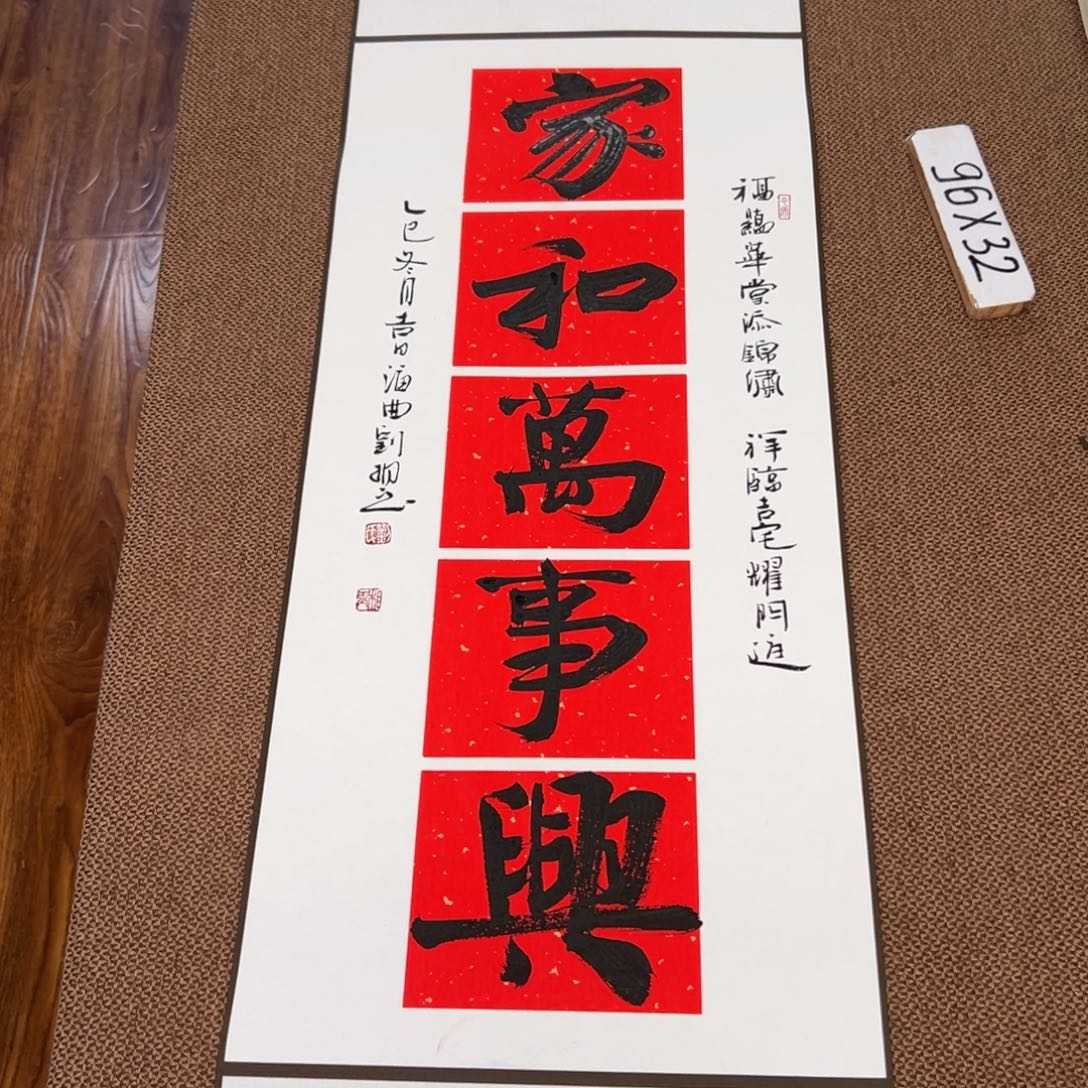 福蘊華堂添錦繡 祥臨吉宅耀門庭
家和萬事興
乙巳冬月吉日海曲劉
96X32